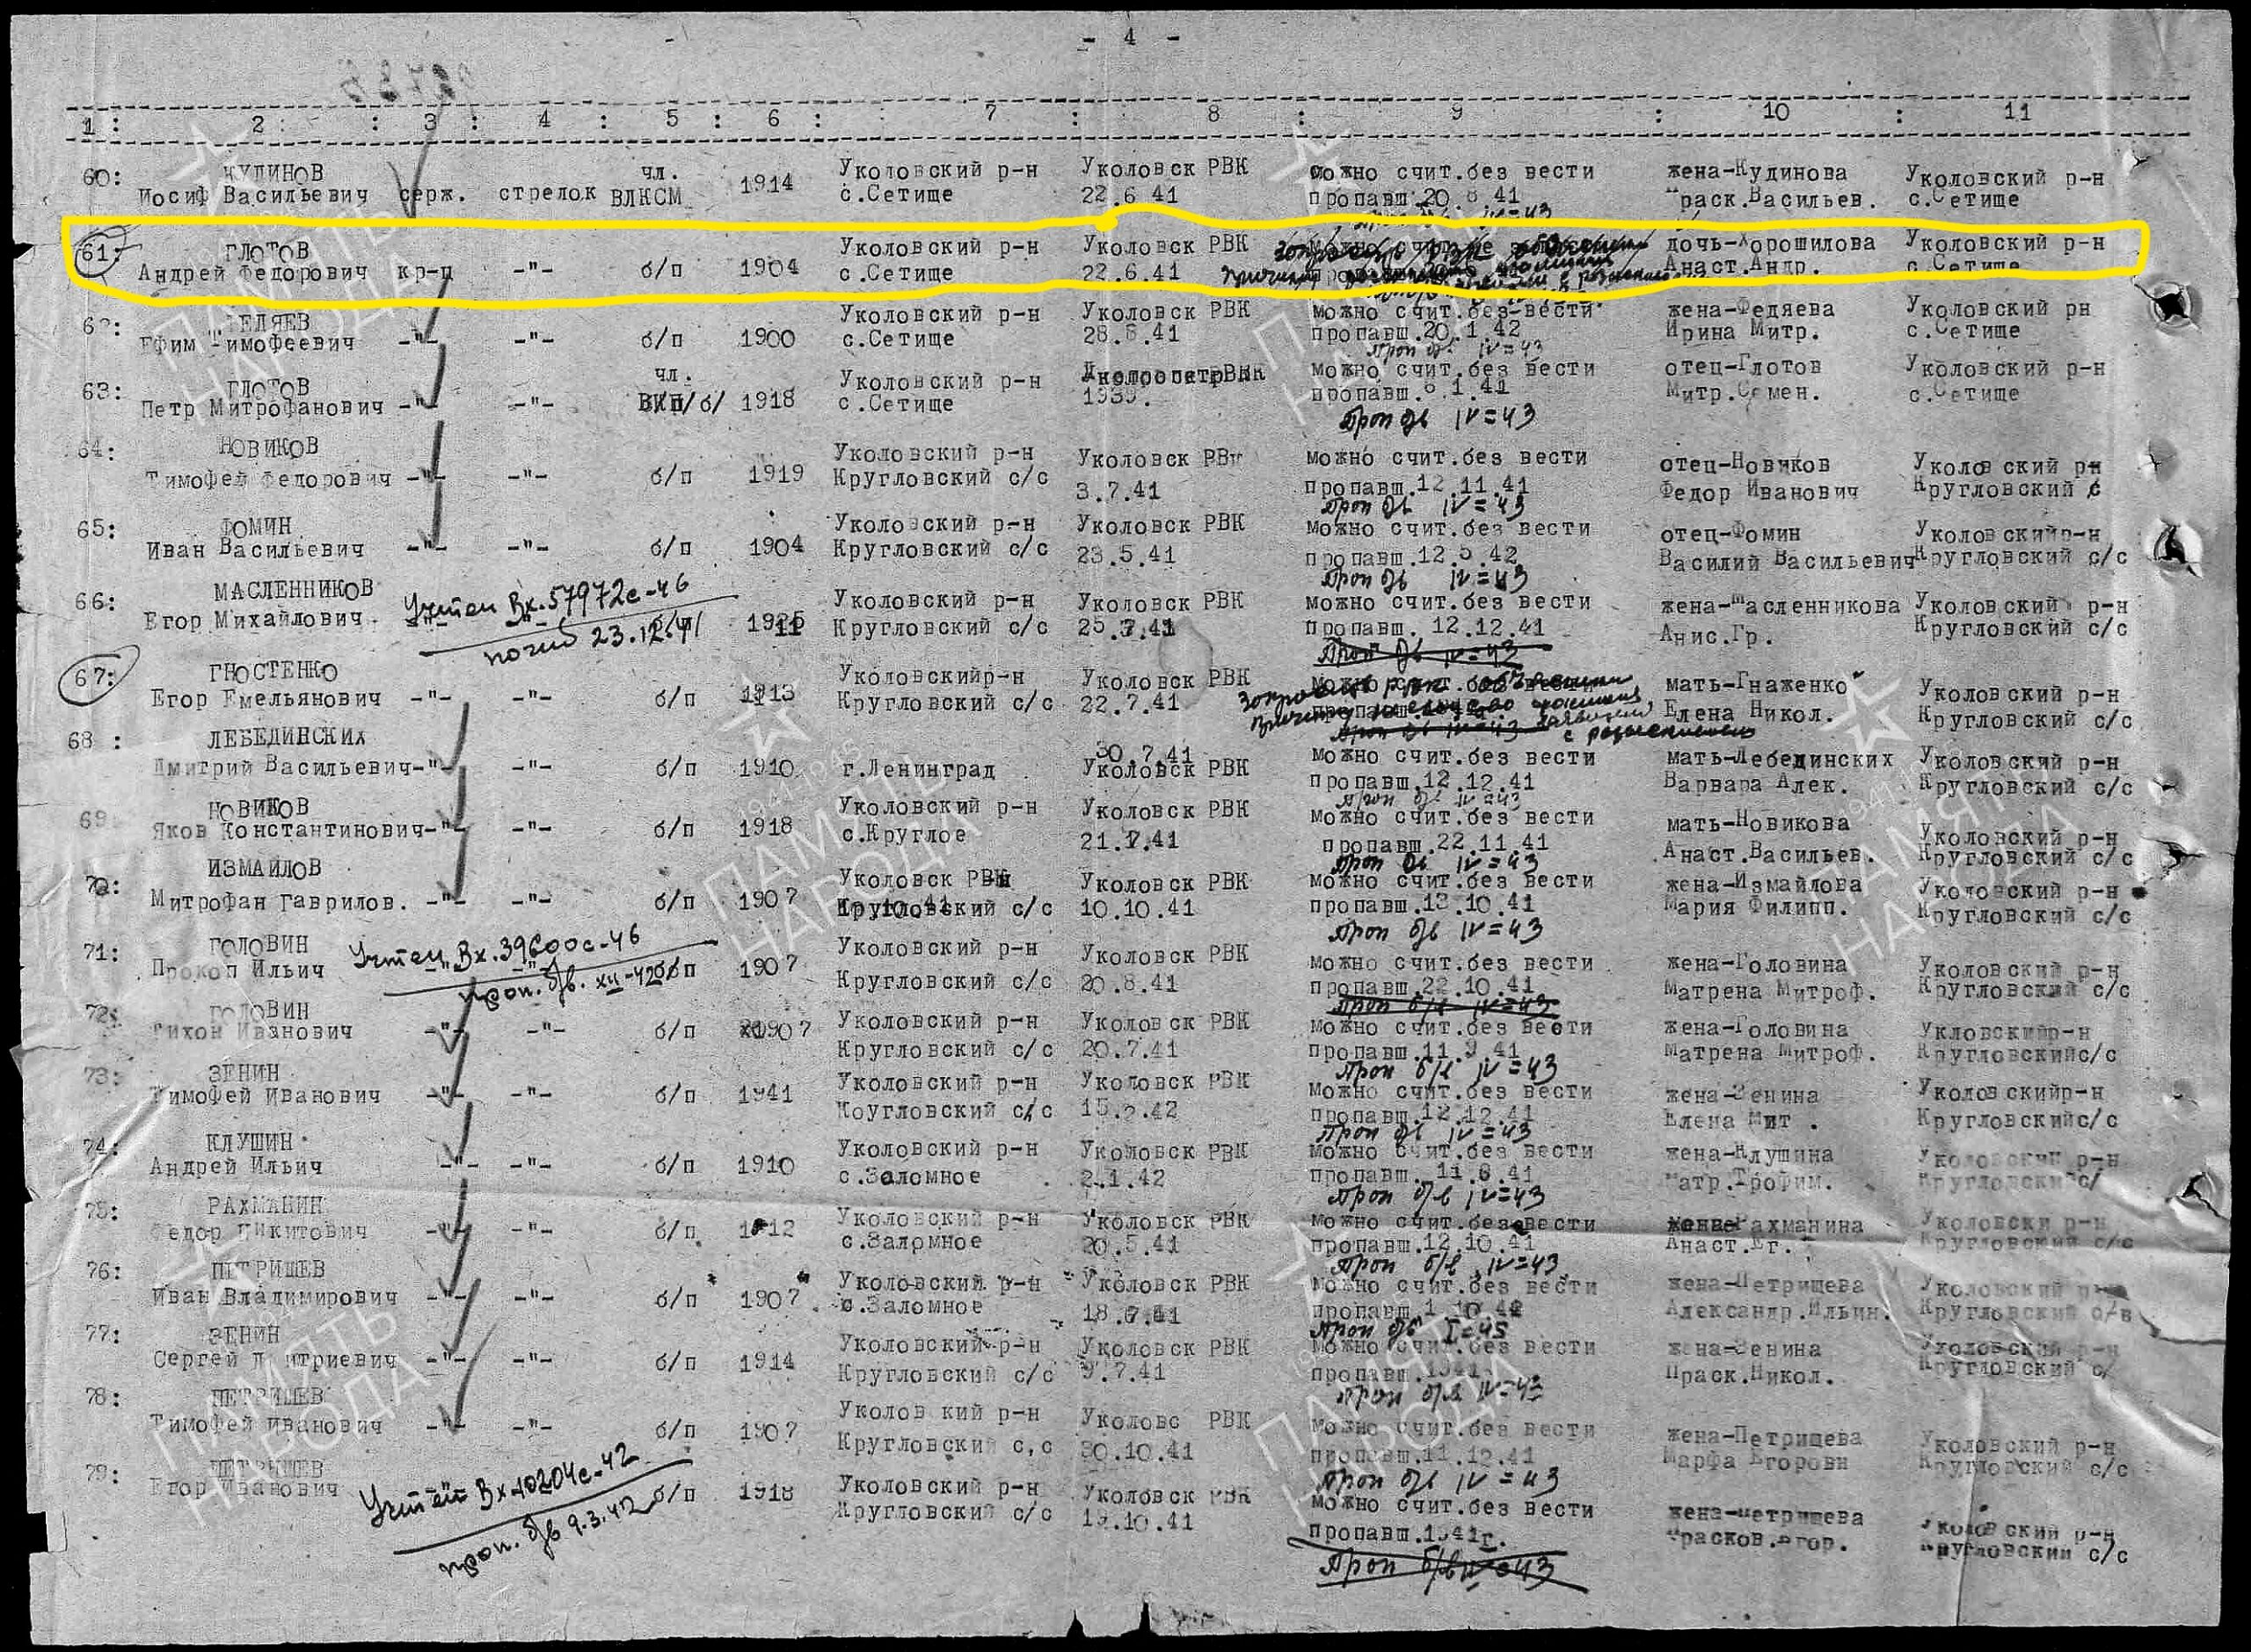 - 4 -
1 : 2 : 3 : 4 : 5 : 6 : 7 : 8 : 9 : 10 : 11
60: КУДИНОВ чл. Уколовский р-н Уколовск РВК можно счит.без вести жена-Кудинова Уколовский р-н
Иосиф Васильевич серж. стрелок ВЛКСМ 1914 с.Сетище 22.6 41 пропавш.20 8 41 Праск.Васильев. с.Сетище
IV=43
61: ГЛОТОВ Уколовский р-н Уколовск РВК дочь-Хорошилова Уколовский р-н
Андрей Федорович кр-ц -"- б/п 1904 с.Сетище 22.6.41 Анаст.Андр. с.Сетище
62: ФЕДЯЕВ Уколовский р-н Уколовск РВК можно счит.без вести жена-Федяева Уколовский рн
Ефим Тимофеевич -"- -"- б/п 1900 с.Сетище 28.8.41 пропавш.20.1.42 Ирина Митр. с.Сетище
Проп бв IV=43
63: ГЛОТОВ чл. Уколовский р-н можно счит.без вести отец-Глотов Уколовский р-н
Петр Митрофанович -"- -"- 1918 с.Сетище 1939. пропавш.6.1.41 Митр.Семен. с.Сетище
Проп бв IV=43
64: НОВИКОВ Уколовский р-н Уколовск РВК можно счит.без вести отец-Новиков Уколовский р-н
Тимофей Федорович -"- -"- б/п 1919 Кругловский с/с 3.7.41 пропавш.12.11.41 Федор Иванович Кругловский с
Проп бв IV=43
65: ФОМИН Уколовский р-н Уколовск РВК можно счит.без вести отец-Фомин Уколовскийр-н
Иван Васильевич -"- -"- б/п 1904 Кругловский с/с 23.5.41 пропавш.12.5.42 Василий Васильевич Кругловский с/с
Проп бв IV=43
66: МАСЛЕННИКОВ Учтен Вх.57972с-46 Уколовский р-н Уколовск РВК можно счит.без вести жена-Масленникова Уколовский р-н
Егор Михайлович погиб 23.12.41 Кругловский с/с пропавш. 12.12.41 Анис.Гр. Кругловский с/с
Проп бв IV=43
67: ГНОСТЕНКО Уколовскийр-н Уколовск РВК мать-Гнаженко Уколовский р-н
Егор Емельянович -"- -"- б/п 1913 Кругловский с/с 22.7.41 Елена Никол. Кругловский с/с
68 : ЛЕБЕДИНСКИХ 30.7.41 можно счит.без вести мать-Лебединских Уколовский р-н
Дмитрий Васильевич-"- -"- б/п 1910 г.Ленинград Уколовск РВК пропавш.12.12.41 Варвара Алек. Кругловский с/с
Проп бв IV=43
69: НОВИКОВ Уколовский р-н Уколовск РВК можно счит.без вести мать-Новикова Уколовский р-н
Яков Константинович-"- -"- б/п 1918 с.Круглое 21.7.41 пропавш.22.11.41 Анаст.Васильев. Кругловский с/с
Проп бв IV=43
70: ИЗМАИЛОВ Уколовск Уколовск РВК можно счит.без вести жена-Измайлова Уколовский р-н
Митрофан Гаврилов. -"- -"- б/п 1907 Кругловский с/с 10.10.41 пропавш.13.10.41 Мария Филипп. Кругловский с/с
Проп бв IV=43
71: ГОЛОВИН Учтен Вх.39600с-46 Уколовский р-н Уколовск РВК можно счит.без вести жена-Головина Уколовский р-н
Прокоп Ильич -"- -"- б/п 1907 Кругловский с/с 20.8.41 пропавш.22.10.41 Матрена Митроф. Кругловский с/с
проп. бв. XII-42 Проп б/в IV=43
72: ГОЛОВИН Уколовский р-н Уколовск РВК можно счит.без вести жена-Головина Укловскийр-н
Тихон Иванович -"- -"- б/п Кругловский с/с 20.7.41 пропавш.11.9.41 Матрена Митроф. Кругловскийс/с
Проп б/в IV=43
73: ЗЕНИН Уколовский р-н Уколовск РВК можно счит.без вести жена-Зенина Уколовскийр-н
Тимофей Иванович -"- -"- б/п 1941 Коугловский с/с 15.2.42 пропавш.12.12.41 Елена Мит . Кругловскийс/с
Проп бв IV=43
74: КЛУШИН Уколовский р-н Уколовск РВК можно счит.без вести жена-Клушина Уколовский р-н
Андрей Ильич -"- -"- б/п 1910 с.Заломное 2.1.42 пропавш. 11.6.41 Матр.Трофим. Кругловский с/
Проп б/в IV=43
75: РАХМАНИН Уколовский р-н Уколовск РВК можно счит.без вести Уколовски р-н
Федор Никитович -"- -"- б/п с.Заломное 20.5.41 пропавш.12.10.41 Анаст.Ег. Кругловский с/с
Проп б/в IV=43
76: ПЕТРИЩЕВ Уколовский р-н Уколовск РВК можно счит.без вести жена-Петрищева Уколовский
Иван Владимирович -"- -"- б/п 1907. с.Заломное пропавш.1 Александр.Ильин. Кругловский
Проп бв I=45
77: ЗЕНИН Уколовский р-н Уколовск РВК можно счит.без вести жена-Зенина Уколовский р-н
Сергей Дмитриевич -"- -"- б/п 1914 Кругловский с/с 9.7.41 пропавш.1941 Праск.Никол. Кругловский с/
Проп б/в IV=43
78: ПЕТРИЩЕВ Уколов кий р-н Уколовс РВК можно счит.без вести жена-Петрищева Уколовский р-н
Тимофей Иванович -"- -"- б/п 1907 Кругловский с,с 30.10.41 пропавш.11.12.41 Марфа Егоровн Кругловский с/с
Проп бв IV=43
79: ПЕТРИЩЕВ Учтен Вх.10204с-42 Уколовский р-н Уколовск РВК можно счит.без вести жена-Петрищева Уколовский р-н
Егор Иванович б/п 1918 Кругловский с/с 19.10.41 пропавш.1941г. Прасков.Егор. Кругловский с/с
проп. бв 9.3.42
Проп б/в IV=43
ПАМЯТЬ
НАРОДА